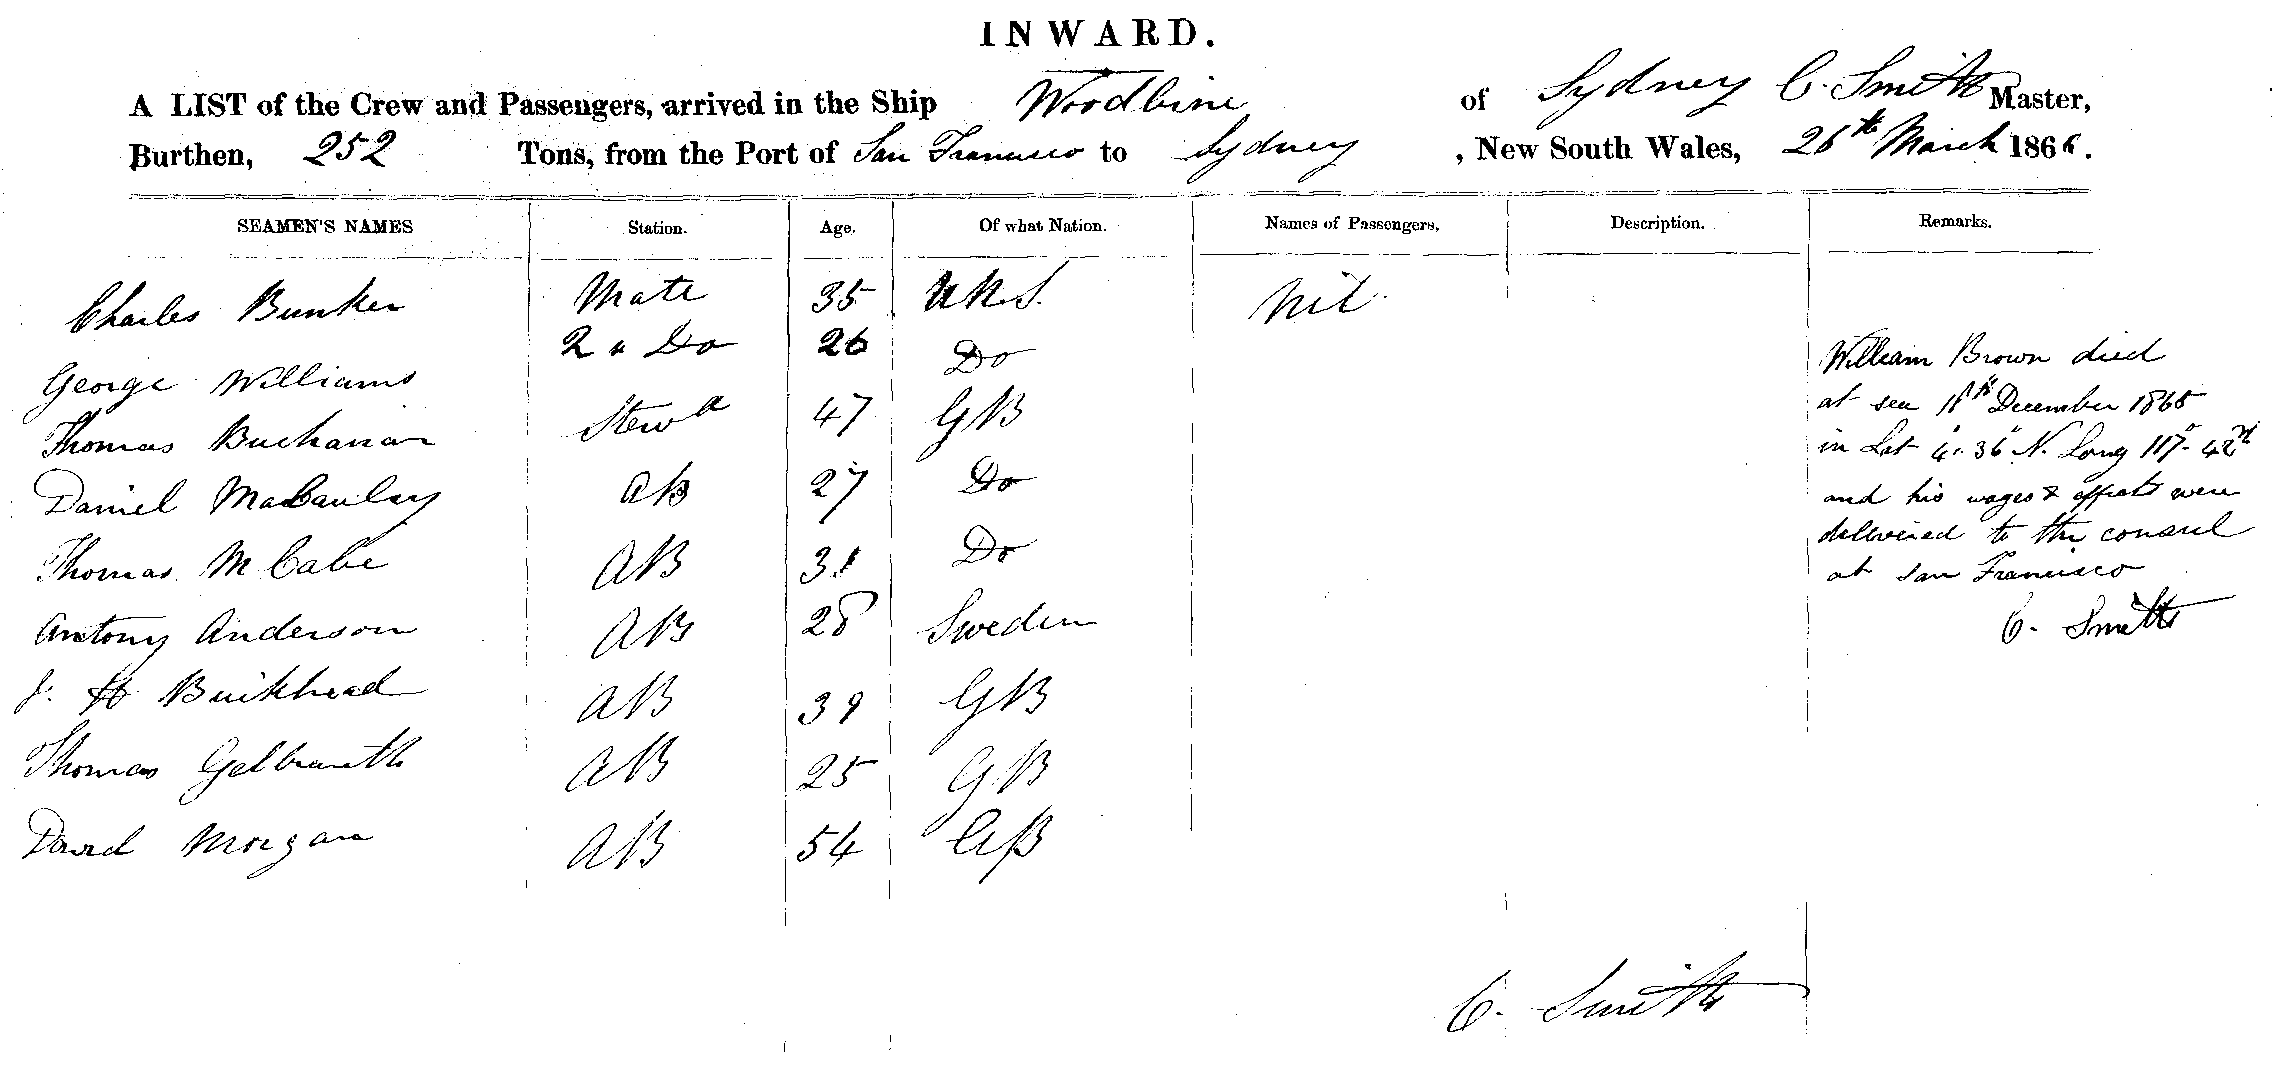 INWARD.
A LIST of the Crew and Passengers, arrived in the Ship Woodbine of Sydney C. Smith Master,
Burthen, 252 Tons, from the Port of San Francisco to Sydney, New South Wales, 26th March 1866.
SEAMEN'S NAMES Station. Age. Of what Nation. Names of Passengers. Description. Remarks.
Charles Bunker Mate 35 U.K.S. Nil
George Williams 2 " Do 26 Do
Thomas Buchanan Stewd 47 GB
Daniel MacCaulay AB 27 Do
Thomas McCabe AB 31 Do
Antony Anderson AB 28 Sweden
J. H Buikhead AB 39 GB
Thomas Gelbraith AB 25 GB
David Morgan AB 54 GB
William Brown died
at sea 18th December 1865
in Lat 4° 36 N. Long 117° 42
and his wages & effects were
delivered to the consul
at San Francisco
C. Smith
C. Smith